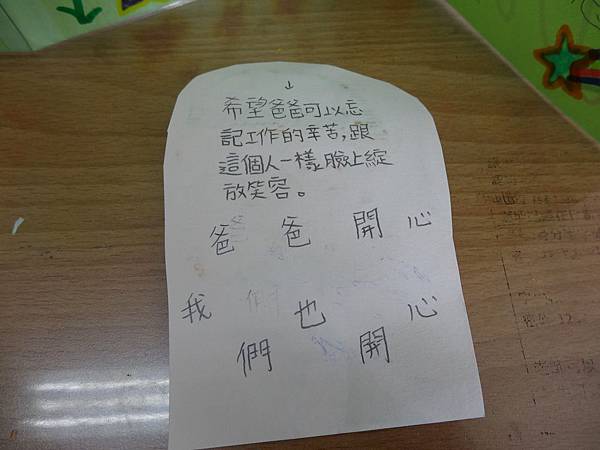 ↓
希望爸爸可以忘
記工作的辛苦,跟
這個人一樣臉上綻
放笑容。
爸爸開心
我們也開心